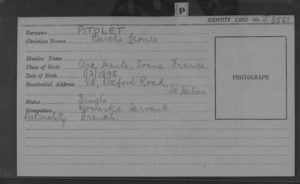 P
IDENTITY CARD No. J.3551
Surname PITOLET
Christian Names Berthe Leonie
Maiden Name
Place of Birth Haute, Soane France
Date of Birth 1/2/1898
Residential Address 85, Oxford Road,
St Helier
Status Single
Occupation Domestic Servant
Nationality French
PHOTOGRAPH